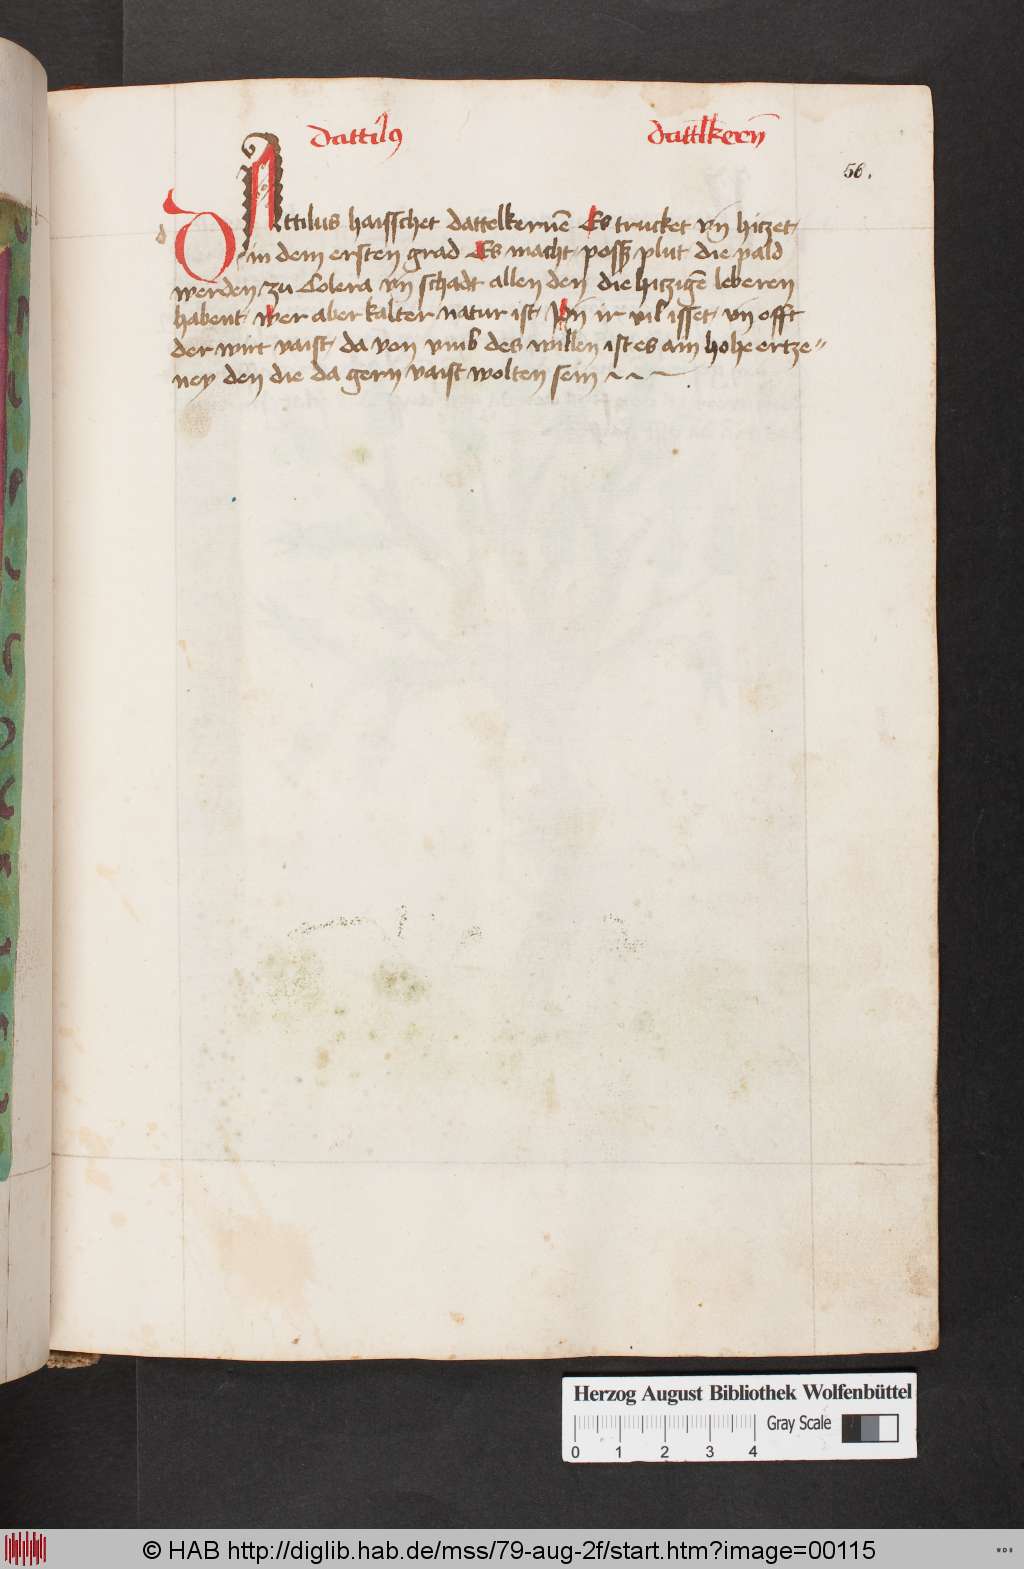 dattilꝰ dattlkern̄
56.
DAttilus haisschet dattelkernē Es trucket vn̄ hitzet
in dem ersten grad Es macht possz plut die pald
werden zu Colera vn̄ schadt allen den die hiczigē leberen
habent wer aber kalter natur ist vn̄ ir vil isset vn̄ offt
der wirt vaist da von vmb des willen ist es am hohe ertze〃
ney den die da gern vaist wolten sein ~ ~ ~
Herzog August Bibliothek Wolfenbüttel
0 1 2 3 4 Gray Scale
© HAB http://diglib.hab.de/mss/79-aug-2f/start.htm?image=00115